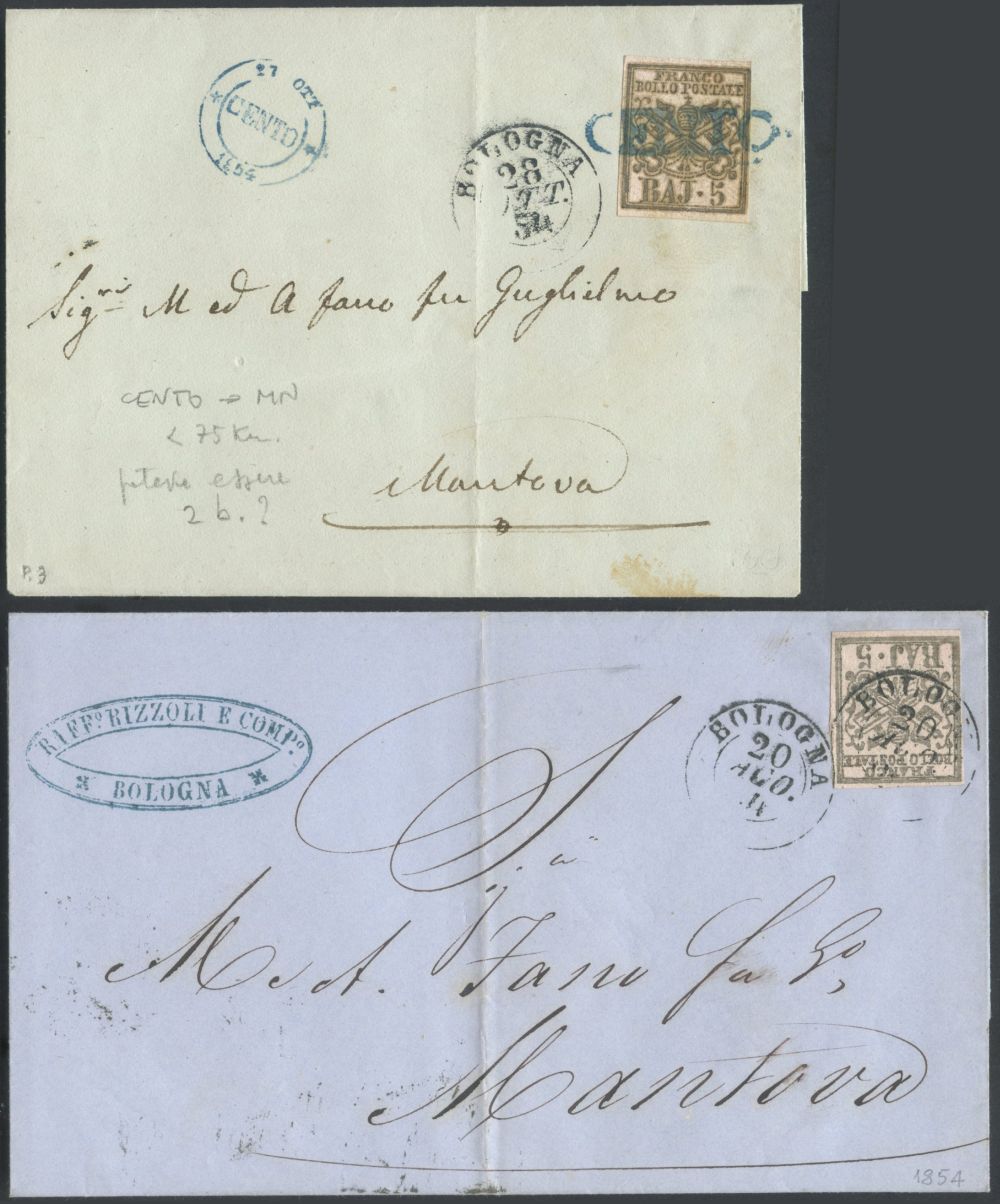 27 OTT
CENTO
1854
BOLOGNA
28
OTT.
54
FRANCO
BOLLO POSTALE
CENTO
BAJ · 5
Sig.ri M ed A fano fu Guglielmo
CENTO → MN
< 75 Km.
poteva essere
2 b. ?
Mantova
P. 3
RAFF.º RIZZOLI E COMP.º
BOLOGNA
BOLOGNA
20
AGO.
BAJ · 5
BOLOG
20
FRANCO
BOLLO POSTALE
M. A. Fano fu Go,
Mantova
1854